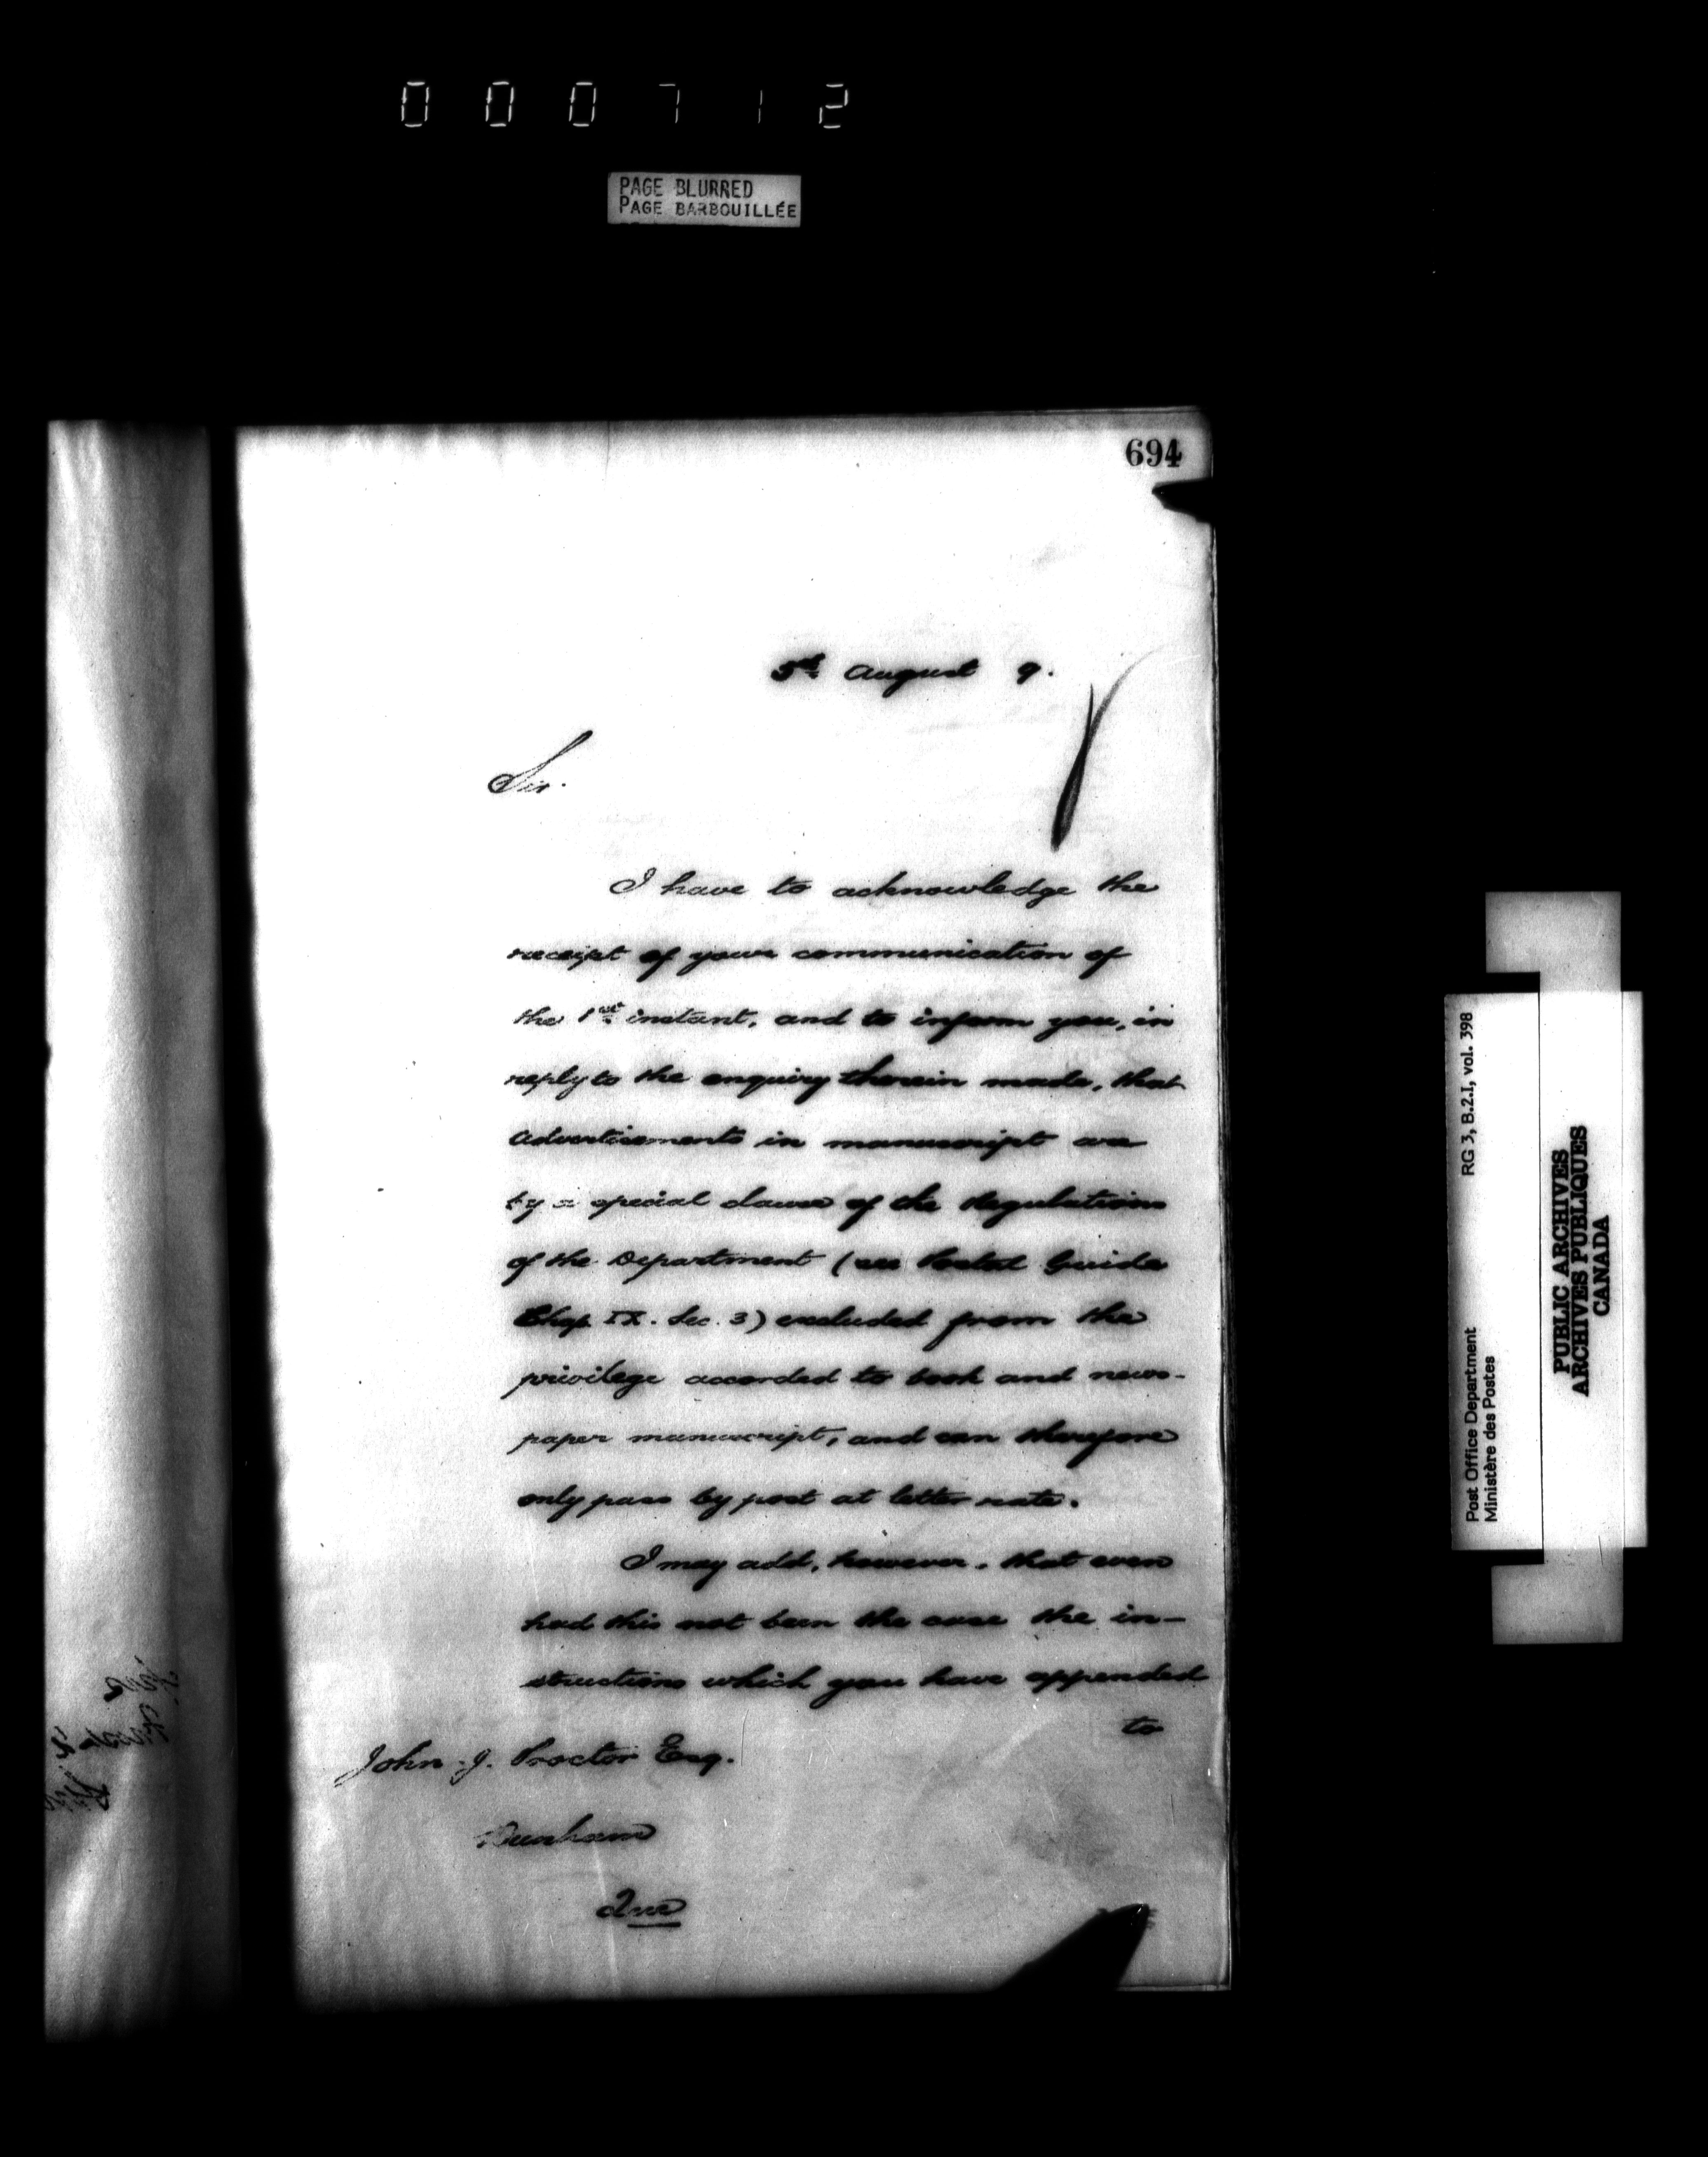 000712
PAGE BLURRED
PAGE BARBOUILLÉE
694
5th August 9.
Sir.
I have to acknowledge the
receipt of your communication of
the 1st instant, and to inform you, in
reply to the enquiry therein made, that
advertisements in manuscript are
by a special clause of the Regulations
of the Department (see Postal Guide
Chap IX. Sec. 3) excluded from the
privilege accorded to book and news-
paper manuscript, and can therefore
only pass by post at letter rate.
I may add, however, that even
had this not been the case the in-
structions which you have appended
to
John J. Proctor Esq.
Dunham
Que
RG 3, B.2.I, vol. 398
Post Office Department
Ministère des Postes
PUBLIC ARCHIVES
ARCHIVES PUBLIQUES
CANADA